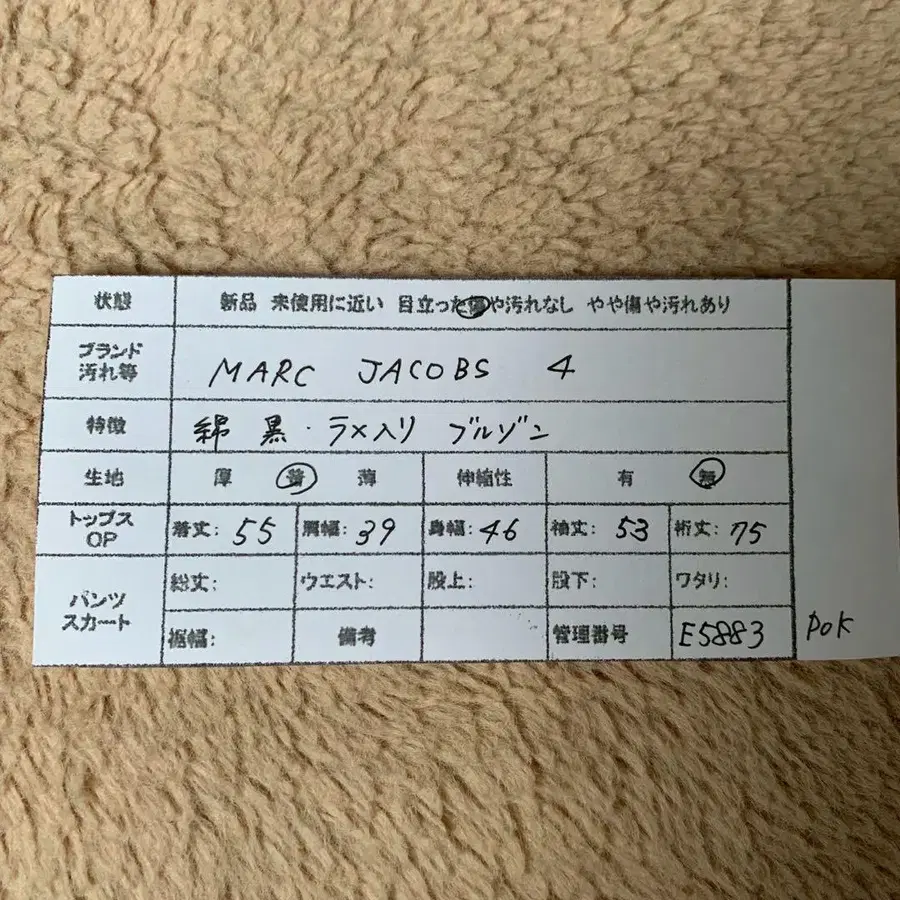 状態 新品 未使用に近い 目立った傷や汚れなし やや傷や汚れあり
ブランド
汚れ等 MARC JACOBS 4
特徴 綿 黒・ラメ入り ブルゾン
生地 厚 普 薄 伸縮性 有 無
トップス
OP 着丈: 55 肩幅: 39 身幅: 46 袖丈: 53 裄丈: 75
パンツ
スカート 総丈: ウエスト: 股上: 股下: ワタリ:
裾幅: 備考 管理番号 E5883
pok